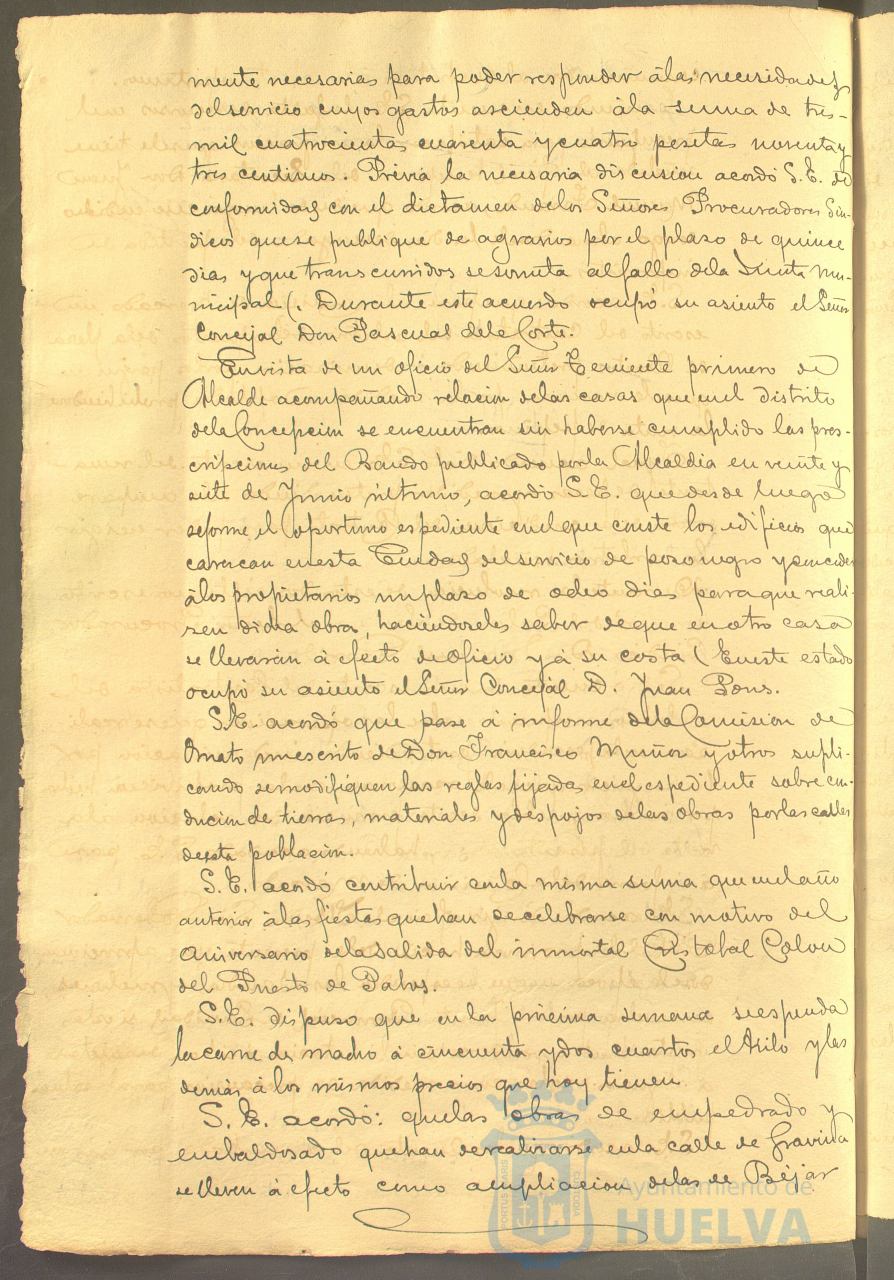 mente necesarias para poder responder á las necesidades
del servicio cuyos gastos ascienden á la suma de tres-
mil cuatrocientas cuarenta y cuatro pesetas noventa y
tres centimos. Prévia la necesaria discusion acordó S.E. de
conformidad con el dictamen de los Señores Procuradores Sin-
dicos que se publique de agravios por el plazo de quince
dias y que transcurridos se someta al fallo de la Junta Mu-
nicipal (. Durante este acuerdo ocupó su asiento el Señor
Concejal Don Pascual de la Corte.
En vista de un oficio del Señor Teniente primero de
Alcalde acompañando relacion de las casas que en el distrito
de la Concepcion se encuentran sin haberse cumplido las pres-
cripciones del Bando publicado por la Alcaldia en veinte y
siete de Junio último, acordó S.E. que desde luego
se forme el oportuno espediente en el que conste los edificios que
carezcan en esta Ciudad del servicio de pozo negro y conceder
á los propietarios un plazo de ocho dias para que reali-
sen dicha obra, haciendoseles saber de que en otro caso
se llevarán á efecto de oficio y á su costa ( En este estado
ocupó su asiento el Señor Concejal D. Juan Pons.
S.E. acordó que pase á informe de la Comision de
Ornato un escrito de Don Francisco Muñoz y otros supli-
cando se modifiquen las reglas fijadas en el espediente sobre con-
duccion de tierras, materiales y despojos de las obras por las calles
de esta poblacion.
S.E. acordó contribuir con la misma suma que en el año
anterior á las fiestas que han de celebrarse con motivo del
aniversario de la salida del inmortal Cristobal Colon
del Puerto de Palos.
S.E. dispuso que en la prócima semana se espenda
la carne de macho á cincuenta y dos cuartos el kilo y las
demás á los mismos precios que hoy tienen
S.E. acordó: que las obras de empedrado y
embaldosado que han de realizarse en la calle de Gravina
se lleven á efecto como ampliacion de las de Béjar
Ayuntamiento de
HUELVA